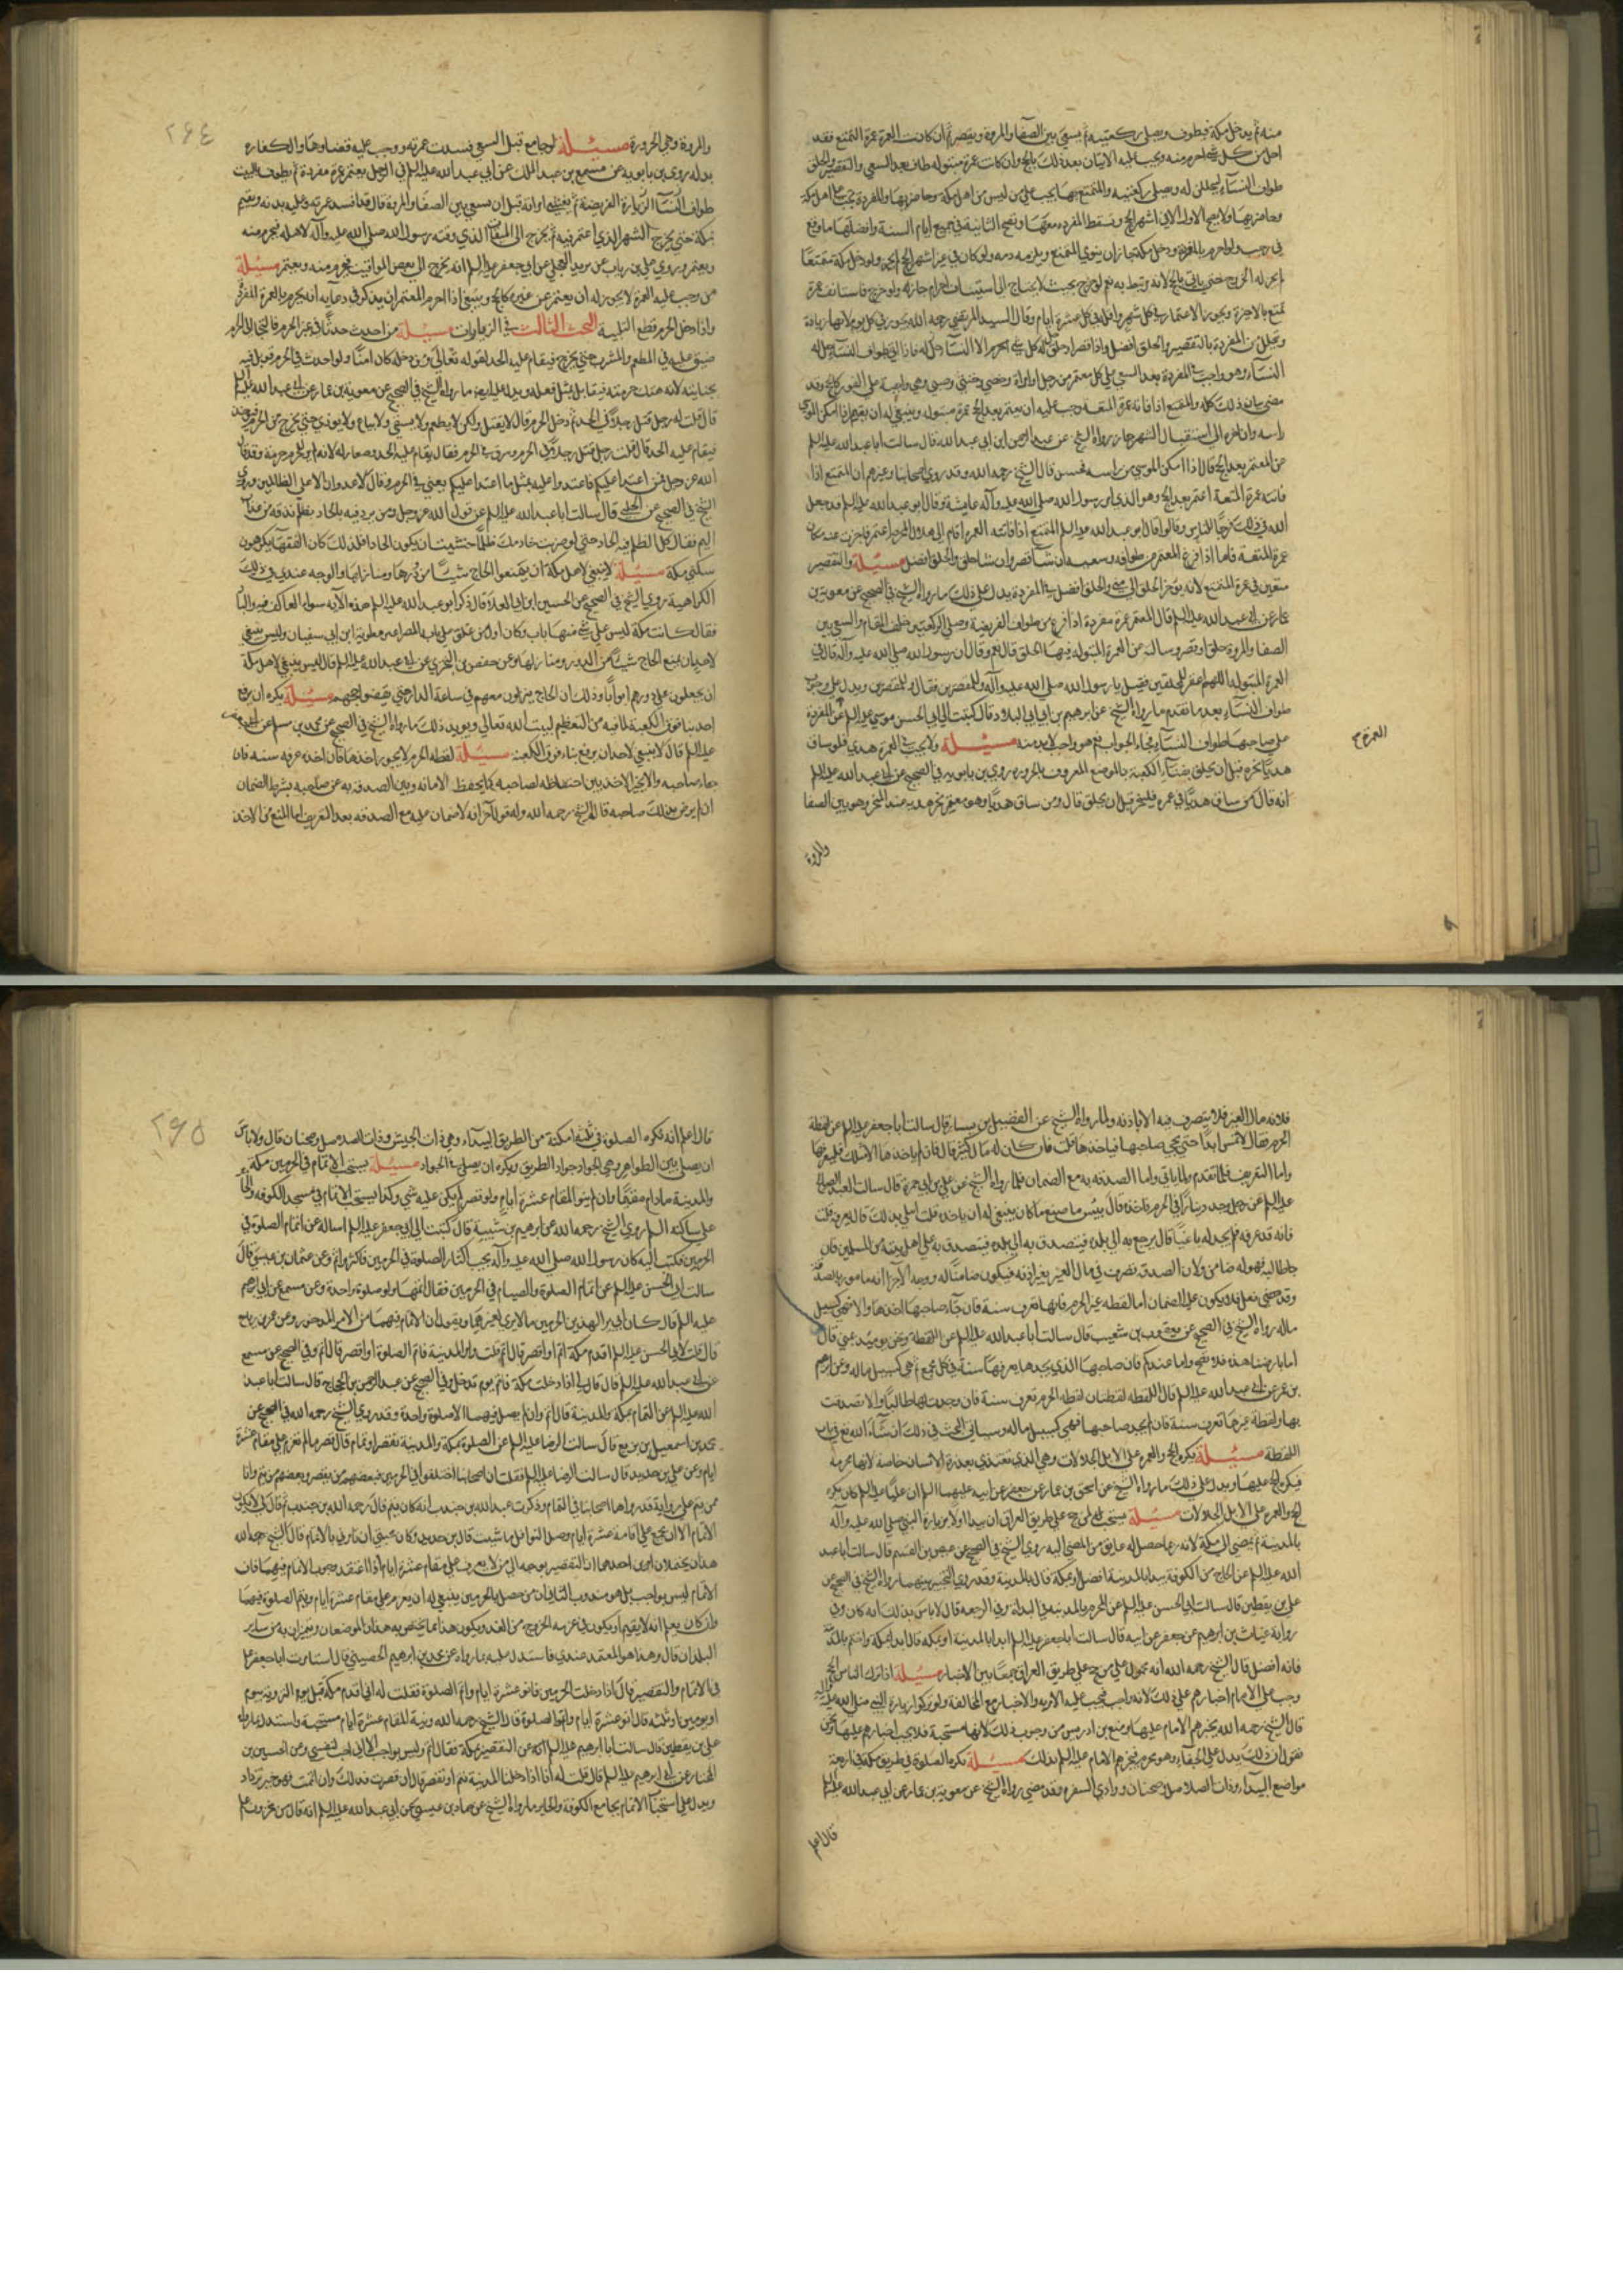 منه ثم يدخل مكة فيطوف ويصلى ركعتيه ثم يسعى بين الصفا والمروة ويقصر ثم ان كانت العمرة عمرة التمتع فقد
احل من كل شئ احرم منه ويجب عليه الاتيان بعد ذلك بالحج وان كانت عمرة مبتولة طاف بعد السعى والتقصير او الحلق
طواف النساء ليحللن له وصلى ركعتيه والمتمتع بها يجب على من ليس من اهل مكة وحاضريها والمفردة تجب على اهل مكة
وحاضريها ولا يصح الاول الا في اشهر الحج وتسقط المفردة معها وتصح الثانية في جميع ايام السنة وافضلها ما وقع
في رجب ولو احرم بالمفردة ودخل مكة جاز ان ينوي التمتع ويلزمه دم ولو كان في غير اشهر الحج لم يجز ولو دخل مكة متمتعا
لم يجز له الخروج حتى ياتي بالحج لانه مرتبط به نعم لو خرج بحيث لا يحتاج الى استيناف احرام جاز له ولو خرج فاستانف عمرة
تمتع بالاخيرة ويجوز الاعتمار في كل شهر واقله في كل عشرة ايام وقال السيد المرتضى رحمه الله يجوز في كل يوم لانها زيادة
ويتحلل من المفردة بالتقصير والحلق افضل واذا قصر او حلق حل له كل شئ احرم الا النسا حل له فاذا اتى بطواف النساء حل له
النساء وهو واجب في المفردة بعد السعى على كل معتمر من رجل او امراة وخصي وخنثى وصبى وهي واجبة على الفور كالحج وقد
مضى بيان ذلك كله والمتمتع اذا فاتته عمرة المتعة وجب عليه ان يعتمر بعد الحج عمرة مبتولة وينبغي له ان يقيم اذا امكن الموسى
راسه وان اخره الى استقبال الشهر جاز رواه الشيخ عن عبد الرحمن ابن ابي عبد الله قال سالت ابا عبد الله عليه السلم
عن المعتمر بعد الحج قال اذا امكن الموسى من راسه فحسن قال الشيخ رحمه الله وقد روى اصحابنا وغيرهم ان المتمتع اذا
فاتته عمرة المتعة اعتمر بعد الحج وهو الذي امر رسول الله صلى الله عليه وآله عايشة وقال ابو عبد الله عليه السلم قد جعل
الله في ذلك فرجا للناس وقالوا قال ابو عبد الله عليه السلم المتمتع اذا فاتته العمرة اقام الى هلال المحرم اعتمر فاجزت عنه مكان
عمرة المتعة فاما اذا فرغ المعتمر من طوافه وسعيه ان شآ قصر وان شا حلق والحلق افضل مسئلة والتقصير
متعين في عمرة التمتع لانه يوخر الحلق الى منى والحلق افضل في المفردة يدل على ذلك ما رواه الشيخ في الصحيح عن معوية بن
عمار عن ابي عبد الله عليه السلم قال المعتمر عمرة مفردة اذا فرغ من طواف الفريضة وصلى الركعتين خلف المقام والسعى بين
الصفا والمروة حلق او قصر وسالته عن العمرة المبتولة فيها الحلق قال نعم وقال ان رسول الله صلى الله عليه وآله قال في
العمرة المبتولة اللهم اغفر للمحلقين فقيل يا رسول الله صلى الله عليه وآله وللمقصرين فقال وللمقصرين ويدل على وجوب
طواف النساء بعد ما تقدم ما رواه الشيخ عن ابرهيم بن ابي البلاد قال كتبت الى ابي الحسن موسى عليه السلم عن المفردة
على صاحبها طواف النساء فجاء الجواب نعم هو واجب لابد منه مسئلة ولا يجب في العمرة هدي فلو ساق
هديا نحره قبل ان يحلق بفناء الكعبة بالموضع المعروف بالحزورة روى بن بابويه في الصحيح عن ابي عبد الله عليه السلم
انه قال من ساق هديا في عمرة فلينحر قبل ان يحلق قال ومن ساق هديا وهو معتمر نحر هديه عند المنحر وهو بين الصفا
والمروة
والمروة وهي الحزورة مسئلة لو جامع قبل السعى فسدت عمرته ووجب عليه قضاوها والكفارة
بدنة روى بن بابويه عن مسمع بن عبد الملك عن ابي عبد الله عليه السلم في الرجل يعتمر عمرة مفردة ثم يطوف بالبيت
بمكة حتى يخرج الشهر الذي اعتمر فيه ثم يخرج الى الميقات الذي وقته رسول الله صلى الله عليه وآله لاهله فيحرم منه
ويعتمر وروى على بن رياب عن بريد العجلي عن ابي جعفر عليه السلم انه يخرج الى بعض المواقيت فيحرم منه ويعتمر مسئلة
من وجب عليه العمرة لا يجوز له ان يعتمر عن غيره كالحج وينبغي اذا احرم المعتمر ان يذكر في دعآيه انه يحرم بالعمرة المفردة
واذا دخل الحرم قطع التلبية البحث الثالث في الزيارات مسئلة من احدث حدثا في غير الحرم فالتجا الى الحرم
ضيق عليه في المطعم والمشرب حتى يخرج فيقام عليه الحد لقوله تعالى ومن دخله كان امنا ولو احدث في الحرم قوبل فيه
بجنايته لانه هتك حرمته فيقابل بمثل فعله ويدل عليه ايضا ما رواه الشيخ في الصحيح عن معوية بن عمار عن ابي عبد الله عليه السلم
قال قلت له رجل قتل رجلا في الحل ثم دخل الحرم قال لا يقتل ولكن لا يطعم ولا يسقى ولا يبايع ولا يوذي حتى يخرج من الحرم
فيقام عليه الحد قال قلت رجل قتل رجلا في الحرم وسرق في الحرم فقال يقام عليه الحد وصغار له لانه لم ير للحرم حرمة وقد قال
الله عز وجل فمن اعتدا عليكم فاعتدوا عليه بمثل ما اعتدا عليكم يعني في الحرم وقال لا عدوان الا على الظالمين وروى
الشيخ في الصحيح عن الحلبي قال سالت ابا عبد الله عليه السلم عن قول الله عز وجل ومن يرد فيه بالحاد بظلم نذقه من عذاب
اليم فقال كل الظلم فيه الحاد حتى لو ضربت خادمك ظلما خشيت ان يكون الحادا فلذلك كان الفقهآ يكرهون
سكنى مكة مسئلة لا ينبغي لاهل مكة ان يمنعوا الحاج شيئا من دورها ومنازلها والوجه عندي في ذلك
الكراهية روى الشيخ في الصحيح عن الحسين ابن ابي العلا قال ذكر ابو عبد الله عليه السلم هذه الاية سواء العاكف فيه والباد
فقال كانت مكة ليس على شئ منها باب وكان اول من علق على بابه المصراعين معوية ابن ابي سفيان وليس ينبغي
لاحد ان يمنع الحاج شيئا من الدور ومنازلها وعن حفص بن البختري عن ابي عبد الله عليه السلم قال ليس ينبغي لاهل مكة
ان يجعلوا على دورهم ابوابا وذلك ان الحاج ينزلون معهم في ساحة الدار حتى يقضوا حجهم مسئلة يكره ان يرفع
احد بنا فوق الكعبة لما فيه من التعظيم لبيت الله تعالى ويويد ذلك ما رواه الشيخ في الصحيح عن محمد بن مسلم عن ابي جعفر
عليه السلم قال لا ينبغي لاحد ان يرفع بناء فوق الكعبة مسئلة لقطة الحرم لا يجوز اخذها فان اخذه عرفه سنة فان
جاء صاحبه والا تخير الاخذ بين احتفاظه لصاحبه كما يحفظ الامانة وبين الصدقة به عن صاحبه بشرط الضمان
ان لم يرض بذلك صاحبه قاله الشيخ رحمه الله وله قول آخر انه لا ضمان عليه مع الصدقة بعد التعريف اما المنع من الاخذ
٢٦٤
فلانه مال الغير فلا يتصرف فيه الا باذنه ولما رواه الشيخ عن الفضيل بن يسار قال سالت ابا جعفر عليه السلم عن لقطة
الحرم فقال لا تمس ابدا حتى يجي صاحبها فياخذها قلت فان كان له مال كثير قال فان لم ياخذها الا مثلك فليعرفها
واما التعريف فلما تقدم ولما ياتي واما الصدقة به مع الضمان فلما رواه الشيخ عن على بن ابي حمزة قال سالت العبد الصالح
عليه السلم عن رجل وجد دينارا في الحرم فاخذه قال بيس ما صنع ما كان ينبغي له ان ياخذه قلت ابتلى بذلك قال يعرفه قلت
فانه قد عرفه فلم يجد له باغيا قال يرجع به الى بلده فيتصدق به على اهل بيت من المسلمين فان
جا طالبه فهو له ضامن ولان الصدقة تصرف في مال الغير بغير اذنه فيكون ضامنا له ووجه الآخر انه مامور بالصدقة
ماله رواه الشيخ في الصحيح عن يعقوب بن شعيب قال سالت ابا عبد الله عليه السلم عن اللقطة ونحن يوميذ بمنى قال
اما بارضنا هذه فلا تصلح واما عندكم فان صاحبها الذي يجدها يعرفها سنة في كل مجمع ثم هي كسبيل ماله وعن ابرهيم
بن عمر عن ابي عبد الله عليه السلم قال اللقطة لقطتان لقطة الحرم تعرف سنة فان وجدت لها طالبا والا تصدقت
بها ولقطة غيرها تعرف سنة فان لم تجد صاحبها فهي كسبيل مالك وسياتي البحث في ذلك ان شآء الله تع في باب
اللقطة مسئلة يكره الحج والعمرة على الابل الجلالات وهي التي تغتذي بعذرة الانسان خاصة لانها محرمة
فيكره الحج عليها ويدل على ذلك ما رواه الشيخ عن اسحق بن عمار عن جعفر عن ابيه عليهما السلم ان عليا عليه السلم كان يكره
الحج والعمرة على الابل الجلالات مسئلة يستحب لمن حج على طريق العراق ان يبدا اولا بزيارة النبي صلى الله عليه وآله
بالمدينة ثم يمضي الى مكة لانه ربما حصل له عايق من المضي اليه روى الشيخ في الصحيح عن عيص بن القسم قال سالت ابا عبد
الله عليه السلم عن الحاج من الكوفة يبدا بالمدينة افضل او بمكة قال بالمدينة وقد روى التخيير بينهما رواه الشيخ في الصحيح عن
على بن يقطين قال سالت ابا الحسن عليه السلم عن الممر بالمدينة في البداة او في الرجعة قال لا باس بذلك اية كان وفي
رواية غياث بن ابرهيم عن جعفر عن ابيه قال سالت ابا جعفر عليه السلم ابدا بالمدينة او بمكة قال ابدا بمكة واختم بالمدينة
فانه افضل قال الشيخ رحمه الله انه محمول على من حج على طريق العراق جمعا بين الاخبار مسئلة اذا ترك الناس الحج
وجب على الامام اجبارهم على ذلك لانه واجب فيجب عليه الامر به والاجبار مع المخالفة ولو تركوا زيارة النبي صلى الله عليه وآله
قال الشيخ رحمه الله يجبرهم الامام عليها ومنع بن ادريس من وجوب ذلك لانها مستحبة فلا يجب اجبارهم عليها ونحن
نقول ان ذلك يدل على الجفاء وهو محرم فيجبرهم الامام عليه السلم لذلك مسئلة تكره الصلوة في طريق مكة في اربعة
مواضع البيدآء وذات الصلاصل وضجنان ووادي الشقرة وقد مضى رواه الشيخ عن معوية بن عمار عن ابي عبد الله عليه السلم
قال اعلم
قال اعلم انه تكره الصلوة في ثلثة امكنة من الطريق البيداء وهي ذات الجيش وذات الصلاصل وضجنان قال ولا باس
ان يصلى بين الظواهر وهي الجواد جواد الطريق ويكره ان يصلى في الجواد مسئلة يستحب الاتمام في الحرمين مكة
والمدينة ما دام مقيما وان لم ينو المقام عشرة ايام ولو قصر لم يكن عليه شي وكذا يستحب الاتمام في مسجد الكوفة والحاير
على ساكنه السلم روى الشيخ رحمه الله عن ابرهيم بن شيبة قال كتبت الى ابي جعفر عليه السلم اساله عن اتمام الصلوة في
الحرمين فكتب اليه كان رسول الله صلى الله عليه وآله يحب اكثار الصلوة في الحرمين فاكثر واتم وعن عثمان بن عيسى قال
سالت ابا الحسن عليه السلم عن اتمام الصلوة والصيام في الحرمين فقال اتمها ولو صلوة واحدة وعن مسمع عن ابي ابرهيم
عليه السلم قال كان ابي يرى لهذين الحرمين ما لا يراه لغيرهما ويقول ان الاتمام فيهما من الامر المذخور وعن عمر بن رياح
قال قلت لابي الحسن عليه السلم اقدم مكة اتم او اقصر قال اتم قلت وامر بالمدينة فاتم الصلوة او اقصر قال اتم وفي الصحيح عن مسمع
عن ابي عبد الله عليه السلم قال قال لي اذا دخلت مكة فاتم يوم تدخل وفي الصحيح عن عبد الرحمن بن الحجاج قال سالت ابا عبد
الله عليه السلم عن التمام بمكة والمدينة قال اتم وان لم تصل فيهما الا صلوة واحدة وقد روى الشيخ رحمه الله في الصحيح عن
محمد بن اسمعيل بن بزيع قال سالت الرضا عليه السلم عن الصلوة بمكة والمدينة تقصير او تمام قال قصر ما لم تعزم على مقام عشرة
ايام وعن على بن حديد قال سالت الرضا عليه السلم فقلت ان اصحابنا اختلفوا في الحرمين فبعضهم يقصر وبعضهم يتم وانا
ممن يتم على رواية قد رواها اصحابنا في التمام وذكرت عبد الله بن جندب انه كان يتم قال رحمه الله بن جندب ثم قال لي لا يكون
الاتمام الا ان تجمع على اقامة عشرة ايام وصل النوافل ما شيت قال بن حديد وكان محبتي ان يامرني بالاتمام قال الشيخ رحمه الله
الاتمام ليس بواجب بل هو مندوب الثاني ان من حصل بالحرمين ينبغي له ان يعزم على مقام عشرة ايام ويتم الصلوة فيهما
وان كان يعلم انه لا يقيم او يكون في عزمه الخروج من الغد ويكون هذا مما يختص به هذان الموضعان ويتميزان به من ساير
البلدان قال وهذا هو المعتمد عندي واستدل عليه بما رواه عن محمد بن ابرهيم الحضيني قال استامرت ابا جعفر عليه السلم
في الاتمام والتقصير قال اذا دخلت الحرمين فانو عشرة ايام واتم الصلوة فقلت له اني اقدم مكة قبل يوم التروية بيوم
او يومين او ثلثة قال انو عشرة ايام واتم الصلوة قال الشيخ رحمه الله ونية المقام عشرة ايام مستحبة واستدل بما رواه
على بن يقطين قال سالت ابا ابرهيم عليه السلم عن التقصير بمكة فقال اتم وليس بواجب الا اني احب لك ما احب لنفسي وعن الحسين بن
المختار عن ابي ابرهيم عليه السلم قال قلت له انا اذا دخلنا المدينة ومكة نتم او نقصر قال ان قصرت فذلك وان اتممت فهو خير تزداد
ويدل على استحباب الاتمام بجامع الكوفة والحاير ما رواه الشيخ عن حماد بن عيسى عن ابي عبد الله عليه السلم انه قال من مخزون علم
٢٦٥